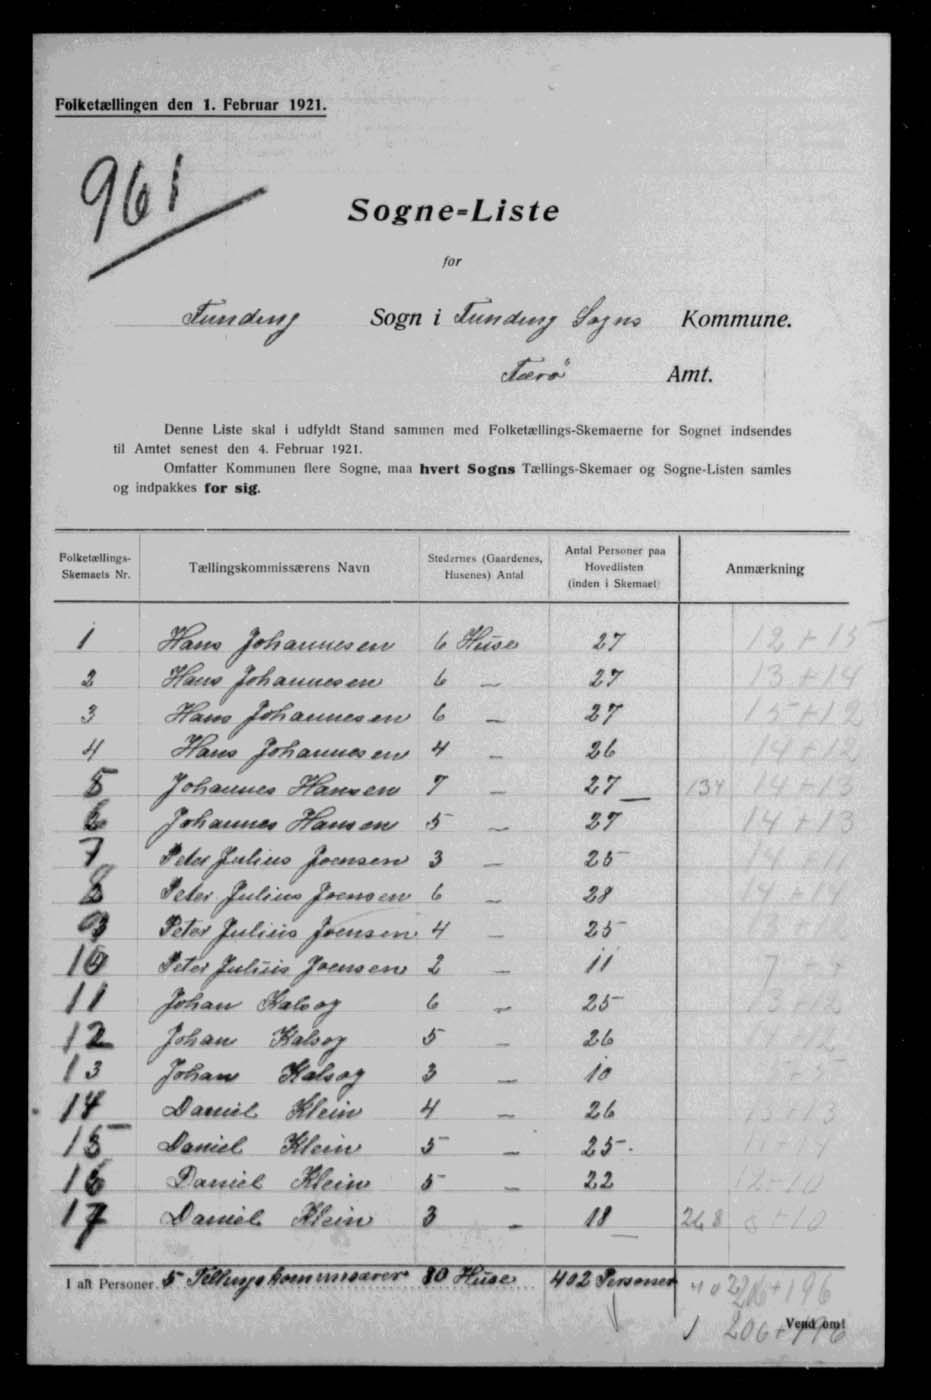 Folketællingen den 1. Februar 1921.
961
Sogne=Liste
for
Funding Sogn i Funding Sogns Kommune.
Færö Amt.
Denne Liste skal i udfyldt Stand sammen med Folketællings-Skemaerne for Sognet indsendes
til Amtet senest den 4. Februar 1921.
Omfatter Kommunen flere Sogne, maa hvert Sogns Tællings-Skemaer og Sogne-Listen samles
og indpakkes for sig.
Folketællings-Skemaets Nr. Tællingskommissærens Navn Stedernes (Gaardenes, Husenes) Antal Antal Personer paa Hovedlisten (inden i Skemaet) Anmærkning
1 Hans Johannesen 6 Huse 27 12 + 15
2 Hans Johannesen 6 — 27 13 + 14
3 Hans Johannesen 6 — 27 15 + 12
4 Hans Johannesen 4 — 26 14 + 12
5 Johannes Hansen 7 — 27 134 14 + 13
6 Johannes Hansen 5 — 27 14 + 13
7 Peter Julius Joensen 3 — 25 14 + 11
8 Peter Julius Joensen 6 — 28 14 + 14
9 Peter Julius Joensen 4 — 25 13 + 12
10 Peter Julius Joensen 2 — 11 7 + 4
11 Johan Kalsog 6 — 25 13 + 12
12 Johan Kalsog 5 — 26 14 + 12
13 Johan Kalsog 3 — 10 5 + 5
14 Daniel Klein 4 — 26 13 + 13
15 Daniel Klein 5 — 25. 11 + 14
16 Daniel Klein 5 — 22 12 + 10
17 Daniel Klein 3 — 18 268 8 + 10
I alt Personer 5 Tellingskommissærer 80 Huse 402 Personer 402 + 196
Vend om!
1 206 + 196